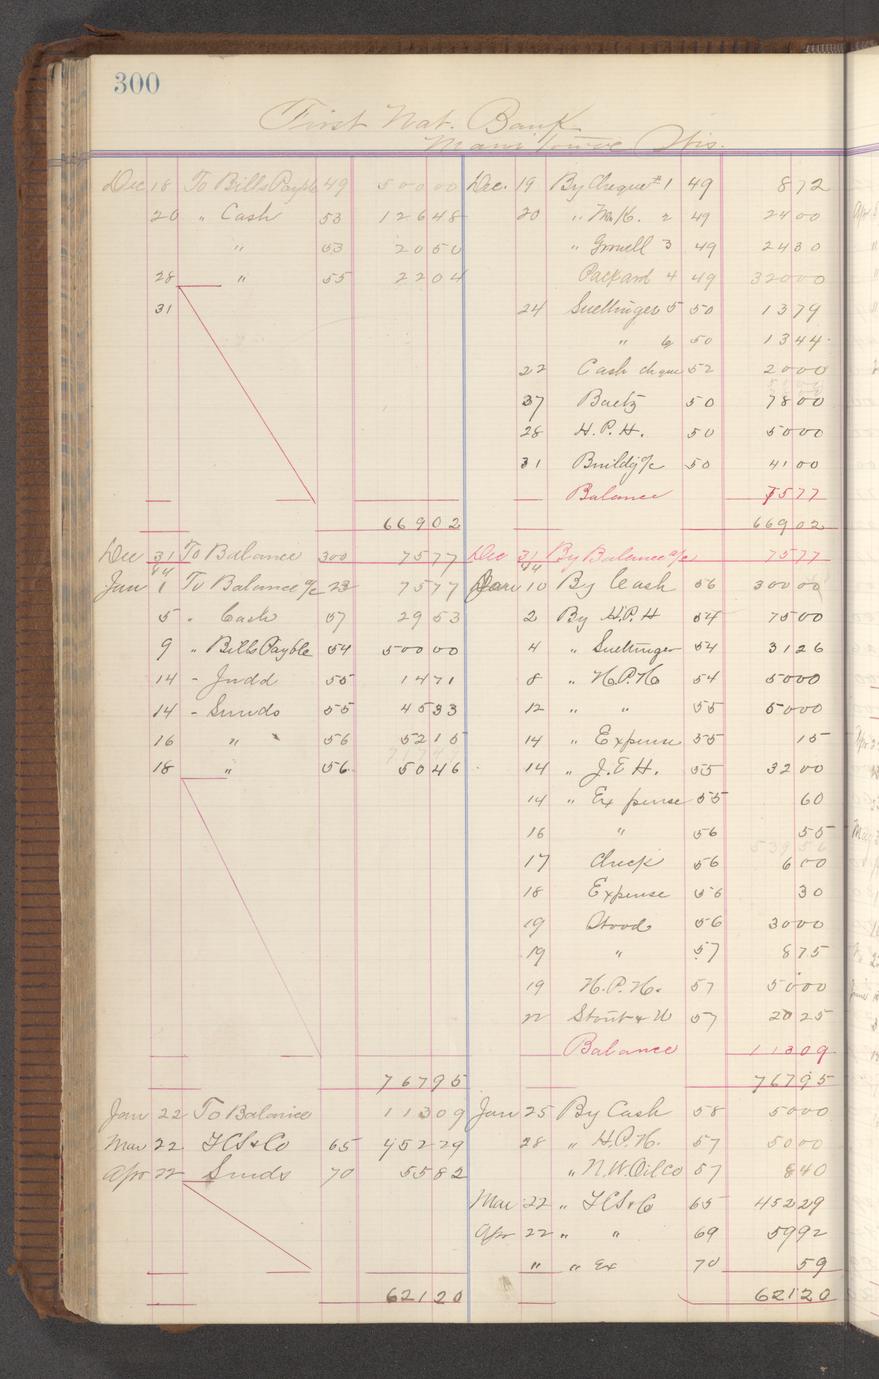 300
First Nat. Bank
Manitowoc Wis.
Dec 18 To Bills Payble 49 500 00 Dec. 19 By Cheque #1 49 8 72
20 " Cash 53 126 48 20 " 2 49 24 00
" 53 20 50 " 3 49 24 30
28 " 55 22 04 Packard 4 49 320 00
31 24 Suettinger 5 50 13 79
" 6 50 13 44
22 Cash cheque 52 20 00
27 Baetz 50 78 00
28 H.P.H. 50 50 00
31 Buildg a/c 50 41 00
Balance 75 77
669 02 669 02
Dec 31 To Balance 300 75 77 Dec 31 By Balance a/c 75 77
Jan 1 To Balance a/c 23 75 77 Jan 10 By Cash 56 300 00
5 " Cash 57 29 53 2 By H.P.H 54 75 00
9 " Bills Payble 54 500 00 4 " Suettinger 54 31 26
14 - Judd 55 14 71 8 " H.P.H 54 50 00
14 - Sunds 55 45 33 12 " " 55 50 00
16 " 56 52 15 14 " Expense 55 15
18 " 56 50 46 14 " J.E.H. 55 32 00
14 " Expense 55 60
16 " 56 55
17 Check 56 6 00
18 Expense 56 30
19 Stood 56 30 00
19 " 57 8 75
19 H.P.H. 57 50 00
22 Stout & 57 20 25
Balance 113 09
767 95 767 95
Jan 22 To Balance 113 09 Jan 25 By Cash 58 50 00
Mar 22 65 452 29 28 " H.P.H. 57 50 00
Apr 22 Sunds 70 55 82 " N.W. Oil Co 57 8 40
Mar 22 " 65 452 29
Apr 22 " " 69 59 92
" " Ex 70 59
621 20 621 20